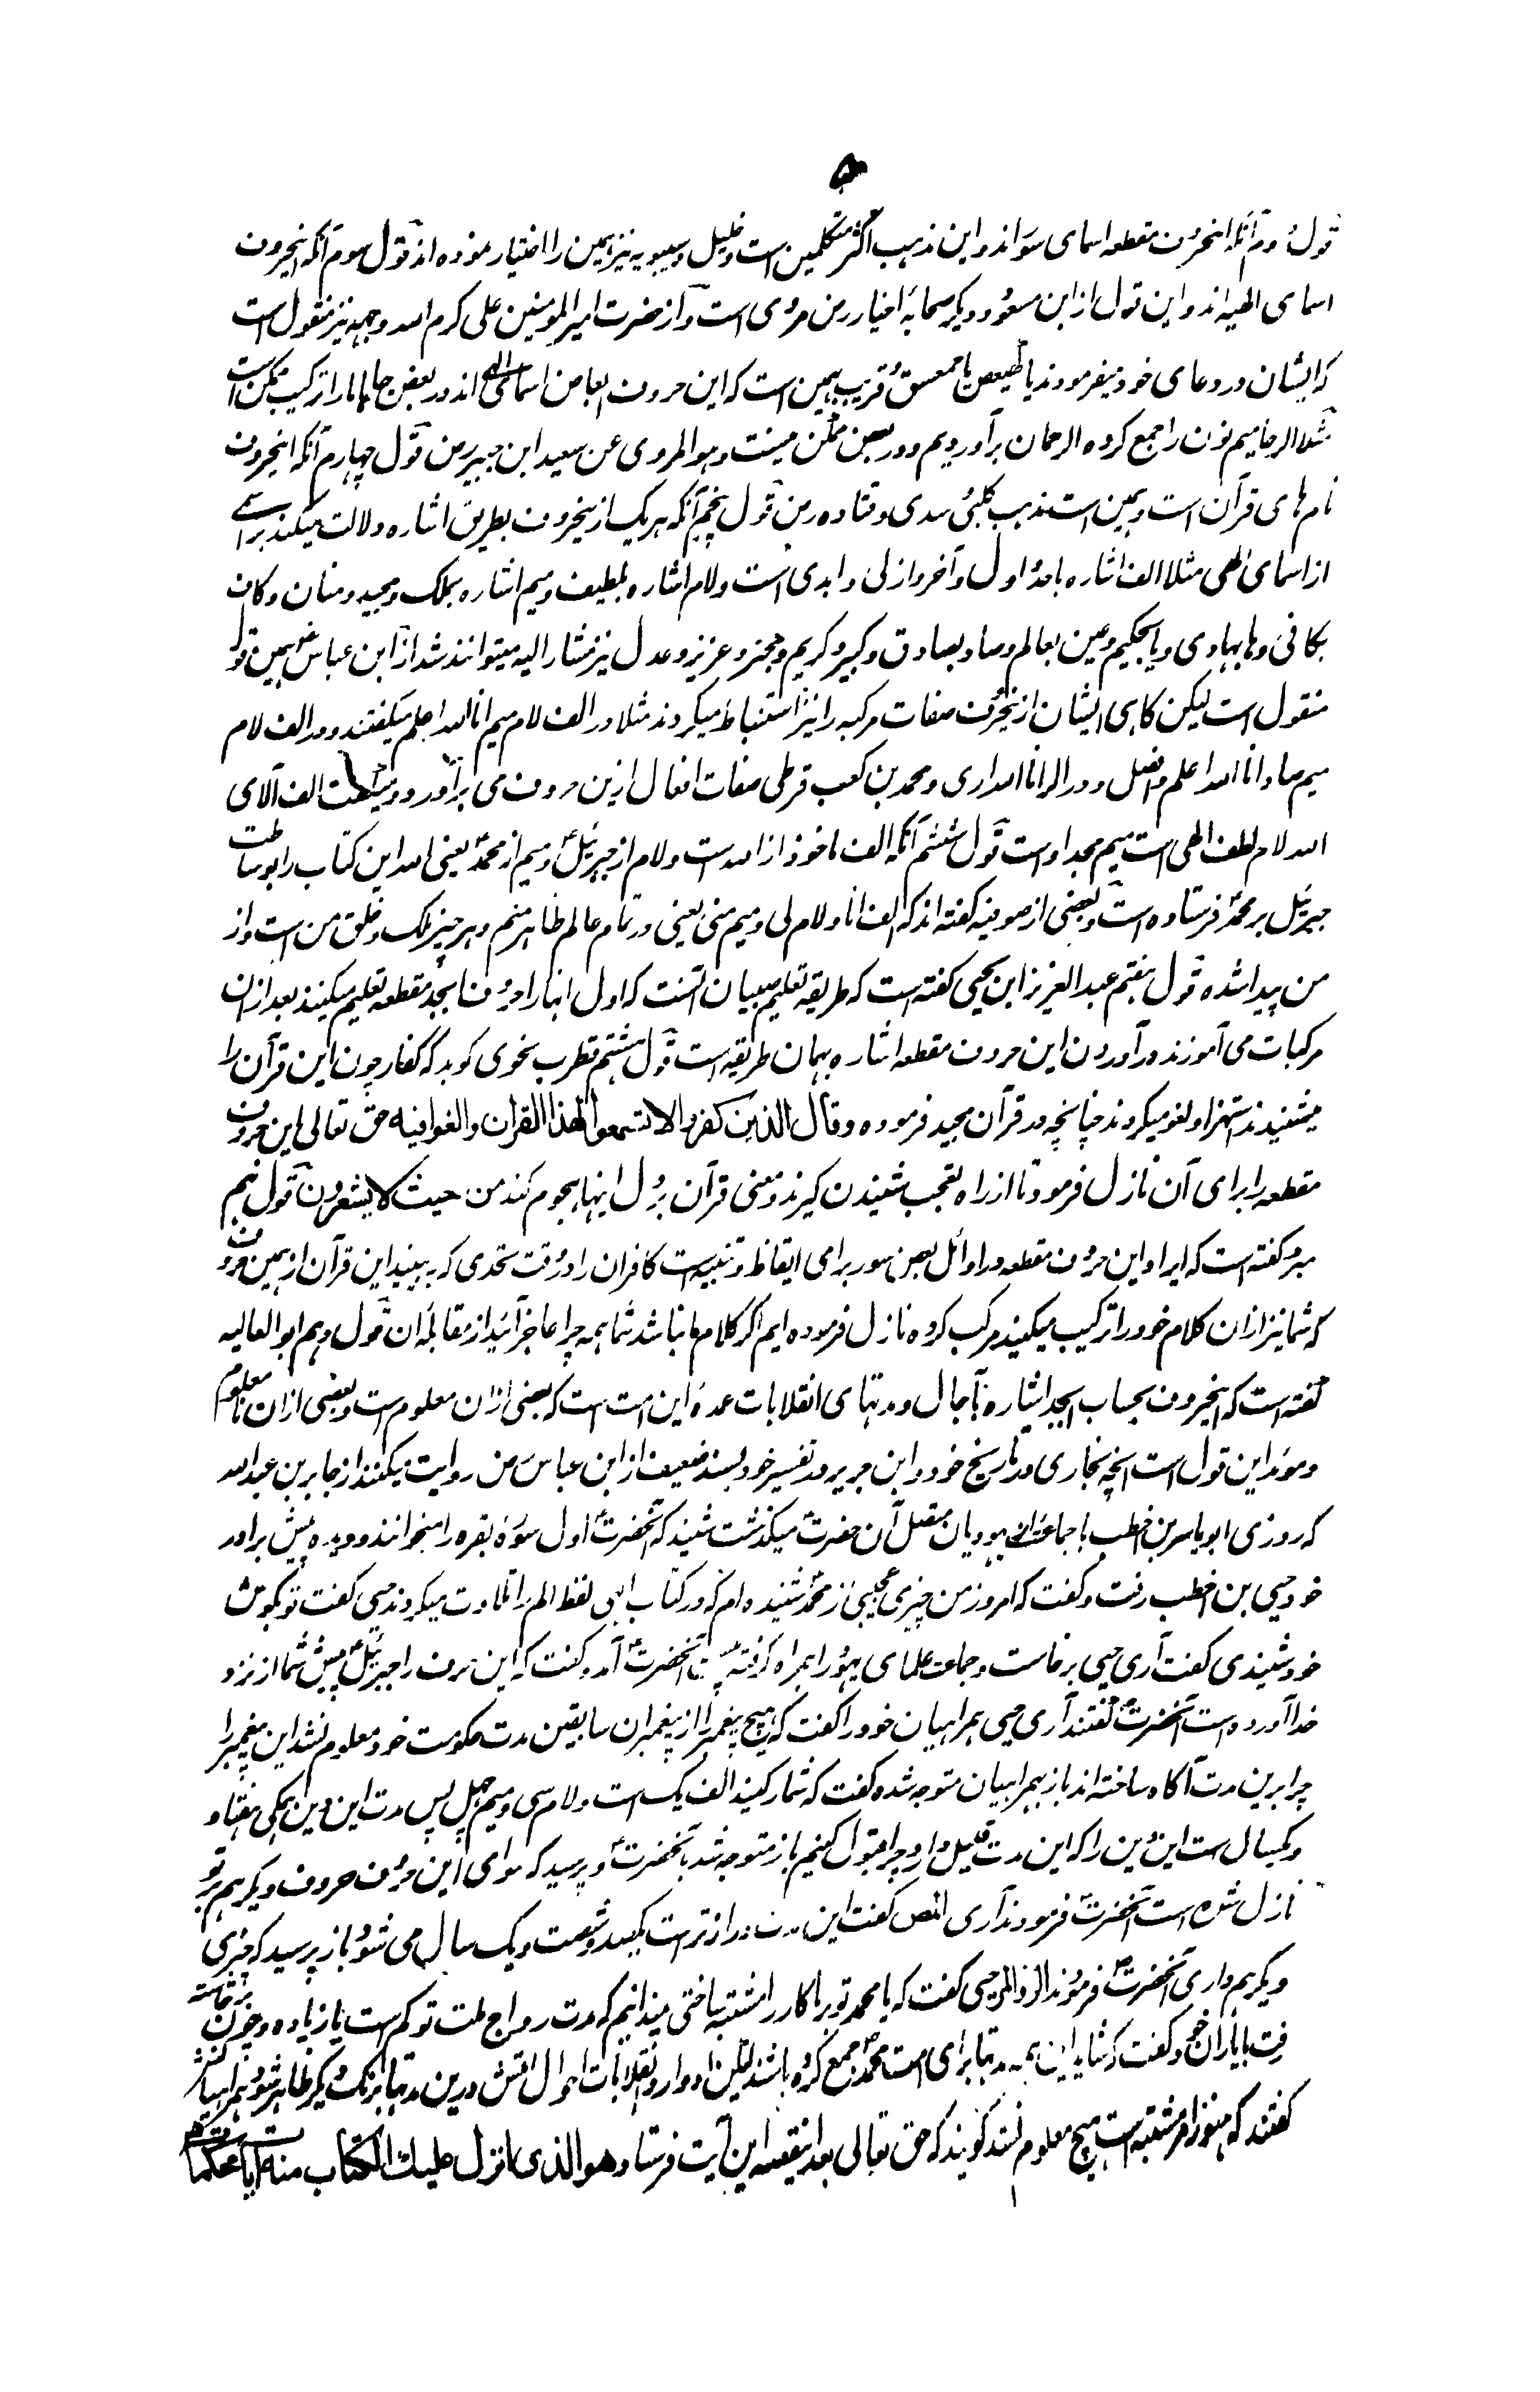 ۵
قول دوم آنکه اینحروف مقطعه اسمای سور اند و این مذهب اکثر متکلمین است و خلیل و سیبویه نیز همین را اختیار نموده اند قول سوم آنکه اینحروف
اسمای الهیه اند و این قول از ابن مسعود و دیگر صحابهٔ اخیار رض مروی است و از حضرت امیر المومنین علی کرم الله وجهه نیز منقول است
که ایشان در دعای خود میفرمودند یا کهیعص یا حمعسق و قریب بهمین است که این حروف ابعاض اسمای الهی اند در بعض جاها ما را ترکیب ممکن است
مثلا الر حامیم نون را جمع کرده الرحمان برآوردیم و در بعض ممکن نیست و هو المروی عن سعید ابن جبیر رض قول چهارم آنکه اینحروف
نام های قرآن است و همین است مذهب کلبی و سدی و قتاده رض قول پنجم آنکه هر یک ازینحروف بطریق اشاره دلالت میکند بر اسمی
از اسمای الهی مثلا الف اشاره باحد و اول و آخر و ازلی و ابدی است و لام اشاره بلطیف و میم اشاره بملک و مجید و منان و کاف
بکافی و ها بهادی و یا بحکیم و عین بعالم و صاد بصادق و کبیر و کریم و مجنر و عزیز و عدل نیز مشار الیه میتوانند شد از ابن عباس رض همین قول
منقول است لیکن گاهی ایشان ازینحروف صفات مرکبه را نیز استنباط میکردند مثلا در الف لام میم انا الله اعلم میگفتند و در الف لام
میم صاد انا الله اعلم و افضل و در الر انا الله اری و محمد بن کعب قرظی صفات افعال ازین حروف می برآورد و میگفت الف آلای
الله لام لطف الهی است میم مجد اوست قول ششم آنکه الف ماخوذ از الله ست و لام از جبرئیل و میم از محمد یعنی الله این کتاب را بوساطت
جبرئیل بر محمد فرستاده است و بعضی از صوفیه گفته اند که الف انا و لام لی و میم منی یعنی در تمام عالم ظاهر منم و هر چیز ملک و خلق من است و از
من پیدا شده قول هفتم عبد العزیز ابن یحیی گفته است که طریقه تعلیم صبیان آنست که اول انها را حروف ابجد مقطعه تعلیم میکنند بعد ازان
مرکبات می آموزند در آوردن این حروف مقطعه اشاره بهمان طریقه است قول هشتم قطرب نحوی گوید که کفار چون این قرآن را
میشنیدند استهزا و لغو میکردند چنانچه در قرآن مجید فرموده وقال الذین کفروا لا تسمعوا لهذا القران والغوا فیه حق تعالی این حروف
مقطعه را برای آن نازل فرمود تا از راه تعجب شنیدن گیرند و معنی قرآن بر دل اینها هجوم کند من حیث لا یشعرون قول نهم
مبرد گفته است که ایراد این حروف مقطعه در اوائل بعض سور برای ایقاظ و تنبیه ست کافران را در وقت تحدی که به بینید این قرآن از همین حروف
که شما نیز ازان کلام خود را ترکیب میکنید مرکب کرده نازل فرموده ایم اگر کلام ما نباشد شما همه چرا عاجز آئید از مقابلهٔ ان قول دهم ابو العالیه
گفته است که اینحروف بحساب ابجد اشاره بآجال و مدتهای انقلابات عمدهٔ این امت است که بعضی ازان معلوم است و بعضی ازان نامعلوم
و موید این قول است انچه بخاری در تاریخ خود و ابن جریر در تفسیر خود بسند ضعیف از ابن عباس رض روایت میکنند از جابر بن عبد الله
که روزی ابو یاسر بن اخطب با جماعت از یهودیان مقبل آن حضرت میگذشت شنید که آنحضرت اول سورهٔ بقره را میخوانند دویده پیش برادر
خود حیی بن اخطب رفت و گفت که امروز من چیزی عجیب از محمد شنیده ام که در کتاب الهی لفظ الم را تلاوت میکردند حیی گفت تو بگوش
خود شنیدی گفت آری حیی برخاست و جماعت علمای یهود را همراه گرفته پیش آنحضرت آمد و گفت که این حرف را جبرئیل پیش شما از نزد
خدا آورده است آنحضرت گفتند آری حیی همراهیان خود را گفت که هیچ پیغمبر را از پیغمبران سابقین مدت حکومت خود معلوم نشد این پیغمبر را
چرا برین مدت آگاه ساخته اند باز بهمراهیان متوجه شده گفت که شمار کنید الف یک است و لام سی و میم چهل پس مدت این دین همگی هفتاد
و یکسال ست این دین را که این مدت قلیل دارد چرا قبول کنیم باز متوجه شد بآنحضرت و پرسید که سوای این حرف حروف دیگر هم بر تو
نازل شده است آنحضرت فرمودند آری المص گفت این مدت درازتر است یکصد و شصت و یک سال می شود باز پرسید که چیزی
دیگر هم داری آنحضرت فرمودند الر و المر حیی گفت که یا محمد تو بر ما کار را مشتبه ساختی نمیدانیم که مدت رواج ملت تو کم ست یا زیاده و چون برخاسته
رفت با یاران خود گفت که شاید این همه مدتها برای امت محمد جمع کرده باشند لیکن ادوار و انقلابات احوال امتش درین مدتها برنگ دیگر ظاهر شود همراهیانش
گفتند که هنوز امر مشتبه است هیچ معلوم نشد گویند که حق تعالی بعد اینقصه این آیت فرستاد هو الذی انزل علیک الکتاب منه ایات محکمات